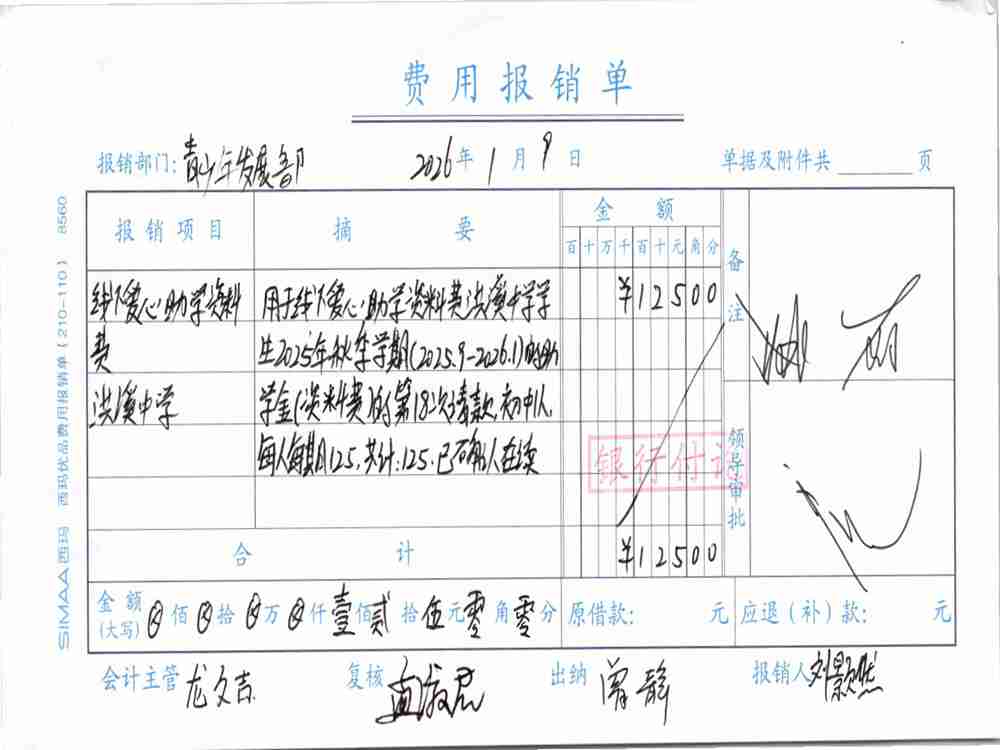 费用报销单
报销部门：青少年发展部 2026年1月9日 单据及附件共 页
报销项目 摘要 金额 备注
百十万千百十元角分
线下爱心助学资料费 洪溪中学
用于线下爱心助学资料费洪溪中学学
生2025年秋季学期(2025.9-2026.1)的助
学金(资料费)的第18次请款,初中1人,
每人每期125,共计:125.已确认在读
¥12500
银行付讫
领导审批
合计 ¥12500
金额(大写) ⊗佰⊗拾⊗万⊗仟壹佰贰拾伍元零角零分 原借款: 元 应退（补）款: 元
会计主管 龙文吉 复核 出纳 曾静 报销人 刘景然
SIMAA西玛 西玛优品费用报销单(210-110) 8560